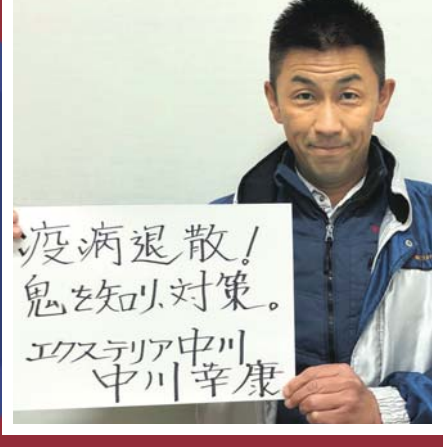 疫病退散!
鬼を知り、対策。
エクステリア中川
中川幸康